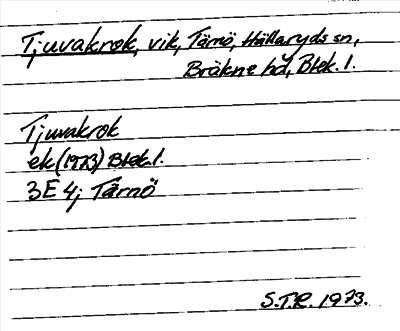 Tjuvakrok, vik, Tärnö, Hällaryds sn,
Bräkne hd, Blek. l.
Tjuvakrok
ek (1973) Blek. l.
3E 4j Tärnö
S.T.R. 1973.